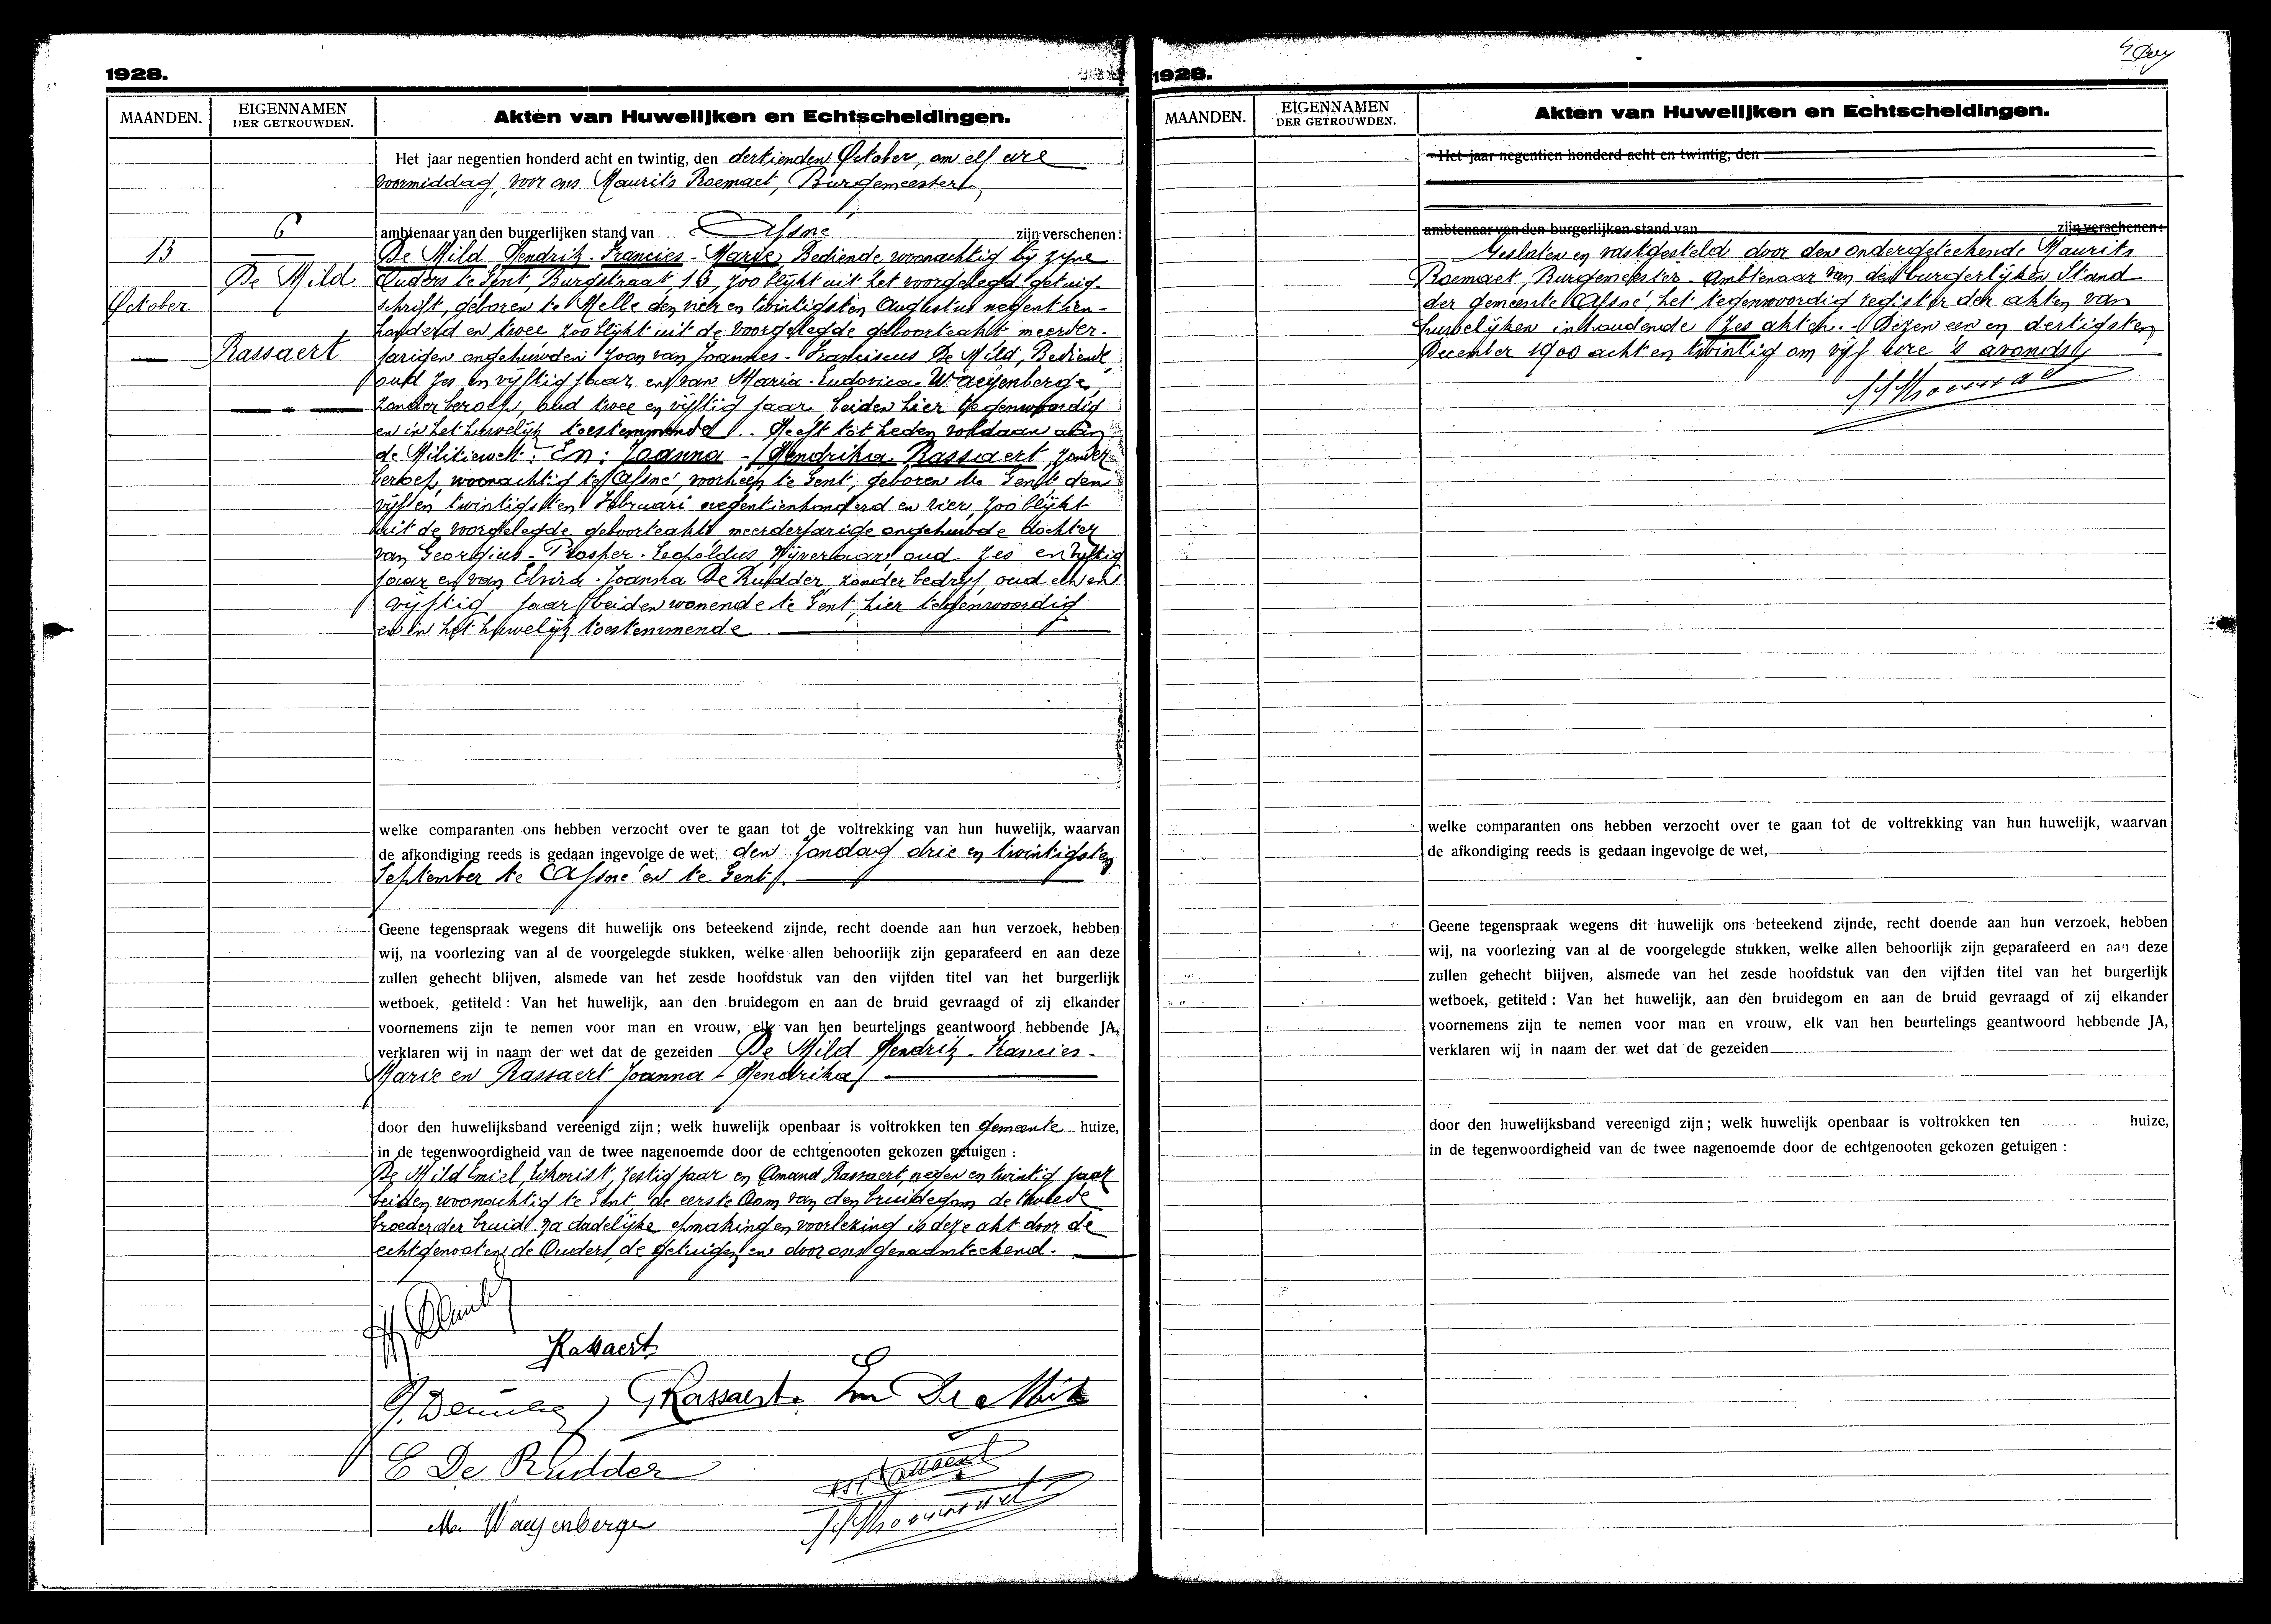 1928.
MAANDEN.
EIGENNAMEN
DER GETROUWDEN.
Akten van Huwelijken en Echtscheidingen.
Het jaar negentien honderd acht en twintig, den dertienden October, om elf ure
voormiddag, voor ons Maurits Roemaet, Burgemeester
6
13
October
De Mild
Rassaert
ambtenaar van den burgerlijken stand van Afsné zijn verschenen:
De Mild Hendrik-Francies-Marie, Bediende woonachtig bij zyne
Ouders te Gent, Burgstraat 16, zoo blijkt uit het voorgelegd getuig-
schrift, geboren te Melle den vier en twintigsten Augustus negentien-
honderd en twee zoo blijkt uit de voorgelegde geboorteakt meerder-
jarigen ongehuwden zoon van Joannes-Franciscus De Mild, Bediende,
oud zes en vijftig jaar, en van Maria-Ludovica Waeyenberge,
zonder beroep, oud twee en vijftig jaar beiden hier tegenwoordig
en in het huwelijk toestemmende. Heeft tot heden voldaan aan
de Militiewet. En: Joanna-Hendrika Rassaert, zonder
beroep, woonachtig te Afsné, voorheen te Gent, geboren te Gent den
vijf en twintigsten Februari negentienhonderd en vier, zoo blijkt
uit de voorgelegde geboorteakt meerderjarige ongehuwde dochter
van Georgius-Prosper-Leopoldus, Nijveraar, oud zes en vijftig
jaar en van Elvira-Joanna De Rudder, zonder bedrijf, oud een en
vijftig jaar beiden wonende te Gent, hier tegenwoordig
en in het huwelijk toestemmende
welke comparanten ons hebben verzocht over te gaan tot de voltrekking van hun huwelijk, waarvan
de afkondiging reeds is gedaan ingevolge de wet, den Zondag drie en twintigsten
September te Afsné en te Gent.
Geene tegenspraak wegens dit huwelijk ons beteekend zijnde, recht doende aan hun verzoek, hebben
wij, na voorlezing van al de voorgelegde stukken, welke allen behoorlijk zijn geparafeerd en aan deze
zullen gehecht blijven, alsmede van het zesde hoofdstuk van den vijfden titel van het burgerlijk
wetboek, getiteld: Van het huwelijk, aan den bruidegom en aan de bruid gevraagd of zij elkander
voornemens zijn te nemen voor man en vrouw, elk van hen beurtelings geantwoord hebbende JA,
verklaren wij in naam der wet dat de gezeiden De Mild Hendrik-Francies-
Marie en Rassaert Joanna-Hendrika
door den huwelijksband vereenigd zijn; welk huwelijk openbaar is voltrokken ten gemeente huize,
in de tegenwoordigheid van de twee nagenoemde door de echtgenooten gekozen getuigen:
De Mild Emiel, zestig jaar en Amand Rassaert, negen en twintig jaar
beiden woonachtig te Gent, de eerste Oom van den bruidegom de tweede
broeder der bruid. Na dadelijke opmaking en voorlezing is deze akt door de
echtgenooten, de Ouders, de getuigen en door ons genaamteekend.
Rassaert
G Rassaert. Em De Mild
E De Rudder
M. Waeyenberge
1928.
MAANDEN.
EIGENNAMEN
DER GETROUWDEN.
Akten van Huwelijken en Echtscheidingen.
Het jaar negentien honderd acht en twintig, den
ambtenaar van den burgerlijken stand van zijn verschenen:
Gesloten en vastgesteld door den ondergeteekende Maurits
Roemaet, Burgemeester-Ambtenaar van den burgerlijken Stand
der gemeente Afsné, het tegenwoordig register der akten van
huwelijken inhoudende zes akten. Dezen een en dertigsten
December 1900 acht en twintig om vijf ure 's avonds
welke comparanten ons hebben verzocht over te gaan tot de voltrekking van hun huwelijk, waarvan
de afkondiging reeds is gedaan ingevolge de wet,
Geene tegenspraak wegens dit huwelijk ons beteekend zijnde, recht doende aan hun verzoek, hebben
wij, na voorlezing van al de voorgelegde stukken, welke allen behoorlijk zijn geparafeerd en aan deze
zullen gehecht blijven, alsmede van het zesde hoofdstuk van den vijfden titel van het burgerlijk
wetboek, getiteld: Van het huwelijk, aan den bruidegom en aan de bruid gevraagd of zij elkander
voornemens zijn te nemen voor man en vrouw, elk van hen beurtelings geantwoord hebbende JA,
verklaren wij in naam der wet dat de gezeiden
door den huwelijksband vereenigd zijn; welk huwelijk openbaar is voltrokken ten huize,
in de tegenwoordigheid van de twee nagenoemde door de echtgenooten gekozen getuigen: